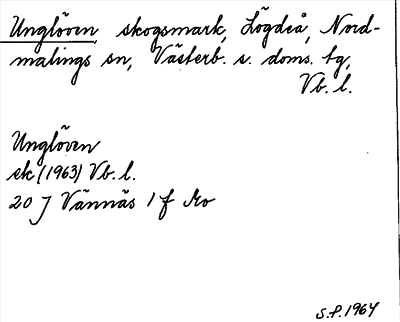 Unglöven, skogsmark, Lögdeå, Nord-
malings sn, Västerb. s. doms. tg,
Vb. l.
Unglöven
ek (1963) Vb. l.
20 J Vännäs 1 f Mo
S.P. 1964